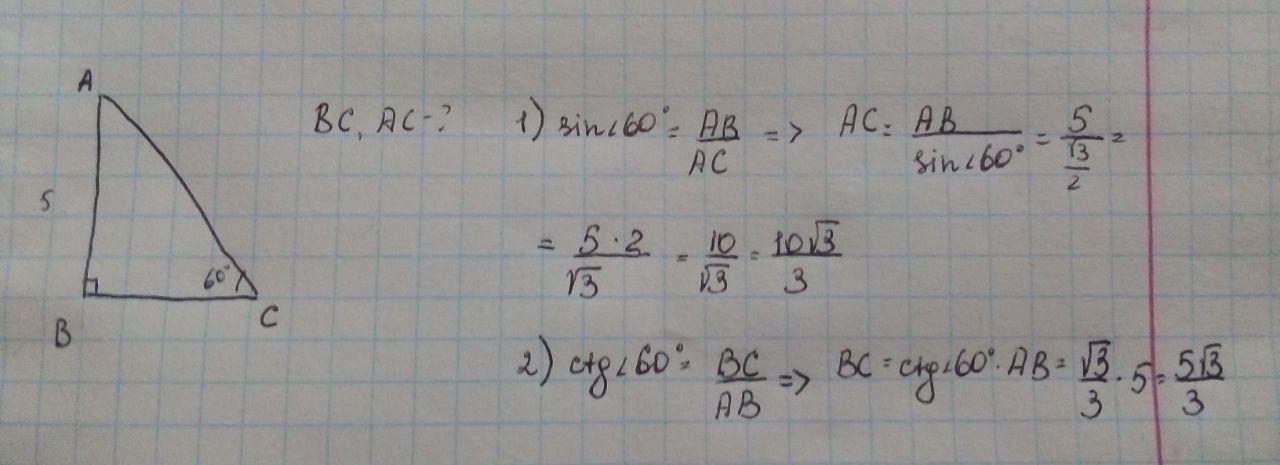 A
5
B
60°
C
BC, AC-?
1) sin∠60° = AB/AC => AC = AB/sin∠60° = 5/(√3/2) =
= 5·2/√3 = 10/√3 = 10√3/3
2) ctg∠60° = BC/AB => BC = ctg∠60°·AB = √3/3·5 = 5√3/3